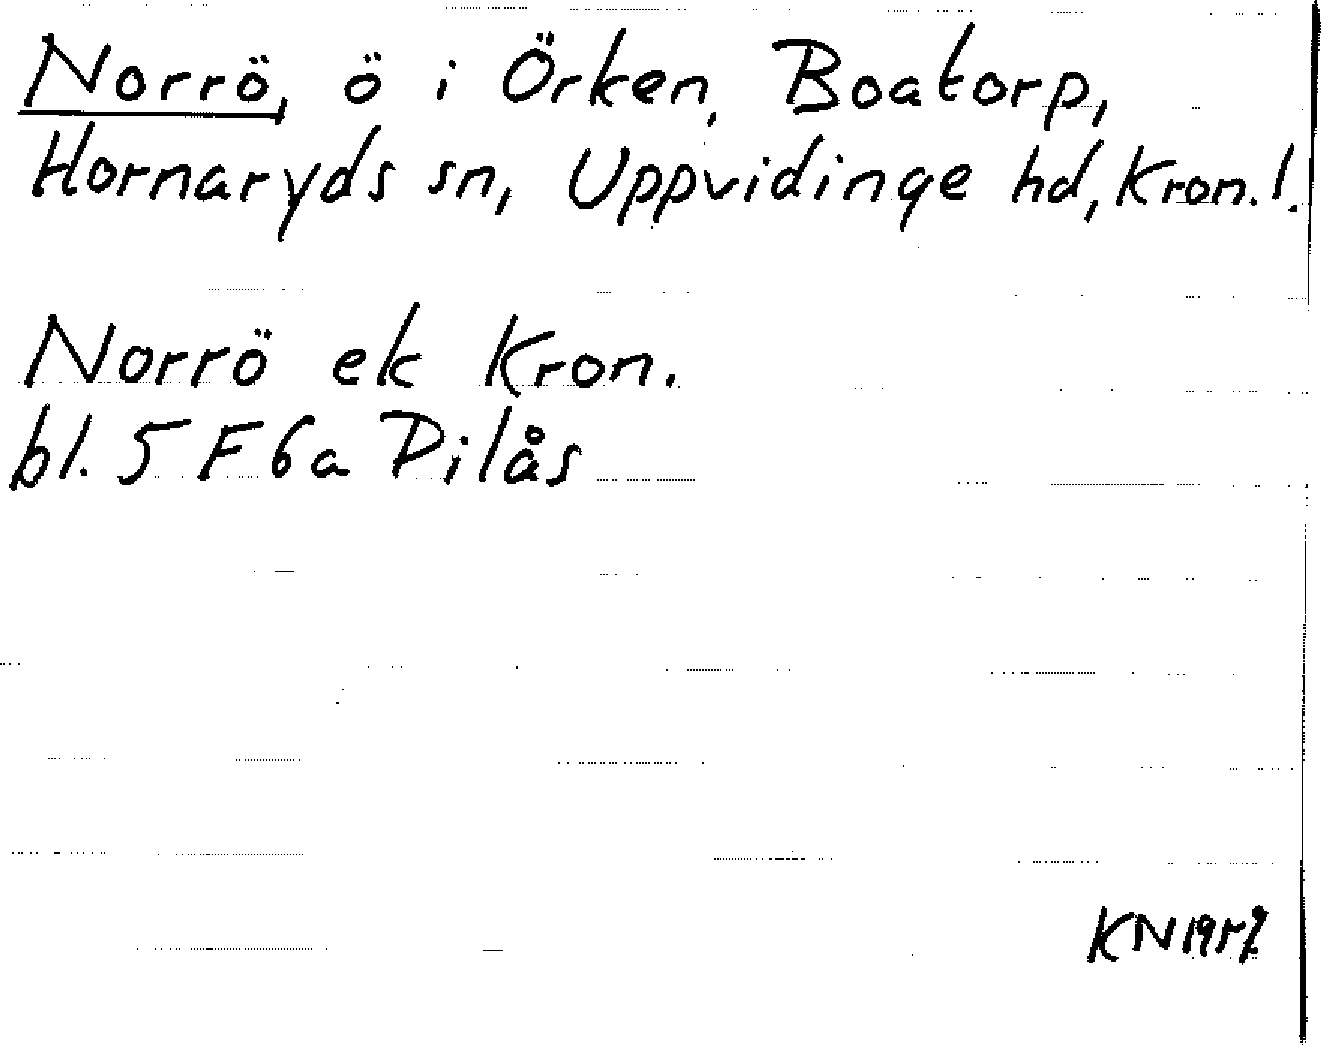 Norrö, ö i Örken, Boatorp,
Hornaryds sn, Uppvidinge hd, Kron.l.
Norrö ek Kron.
bl. 5 F 6a Pilås
KN